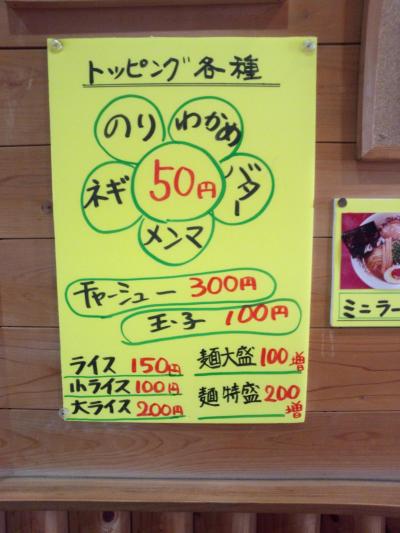 トッピング各種
のり
わかめ
ネギ
50円
バター
メンマ
チャーシュー 300円
玉子 100円
ライス 150円
小ライス 100円
大ライス 200円
麺大盛 100増
麺特盛 200増
ミニラー